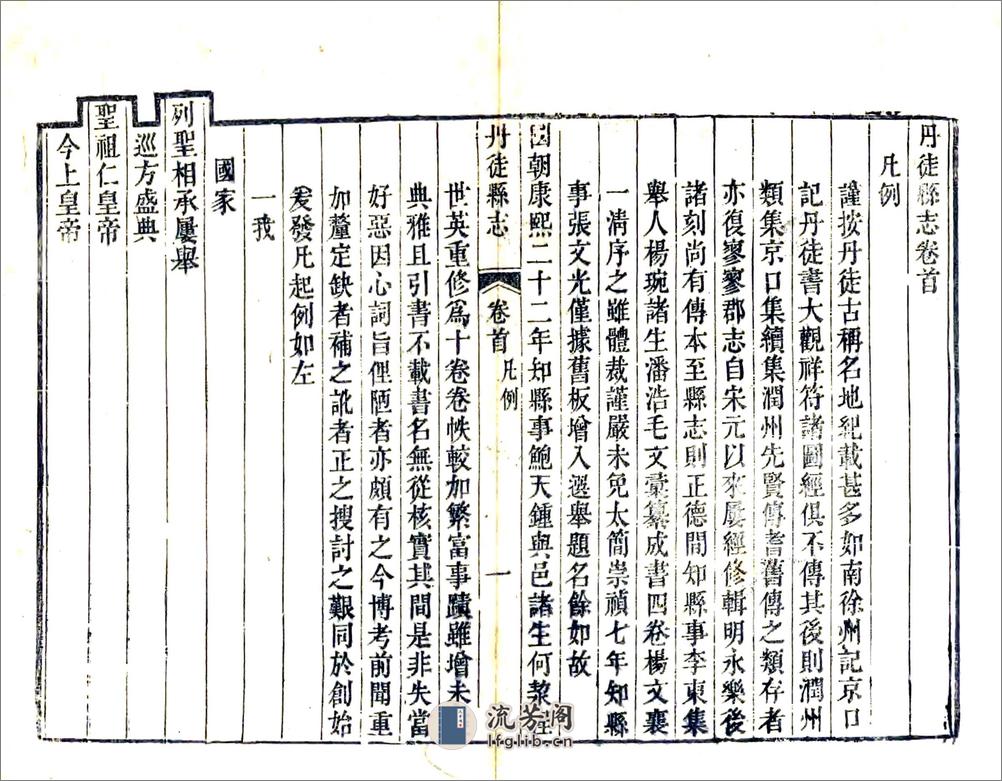 丹徒縣志卷首
凡例
謹按丹徒古稱名地紀載甚多如南徐州記京口
記丹徒書大觀祥符諸圖經俱不傳其後則潤州
類集京口集續集潤州先賢傳耆舊傳之類存者
亦復寥寥郡志自宋元以來屢經修輯明永樂後
諸刻尚有傳本至縣志則正德間知縣事李東集
舉人楊琬諸生潘浩毛文彙纂成書四卷楊文襄
一淸序之雖體裁謹嚴未免太簡崇禎七年知縣
事張文光僅據舊板增入選舉題名餘如故
國朝康熙二十二年知縣事鮑天鍾與邑諸生何
丹徒縣志 卷首 凡例 一
世英重修爲十卷卷帙較加繁富事蹟雖增未
典雅且引書不載書名無從核實其間是非失當
好惡因心詞旨俚陋者亦頗有之今博考前聞重
如釐定缺者補之訛者正之搜討之艱同於創始
爰發凡起例如左
一我
國家
列聖相承屢舉
巡方盛典
聖祖仁皇帝
今上皇帝
流芳閣
lfglib.cn